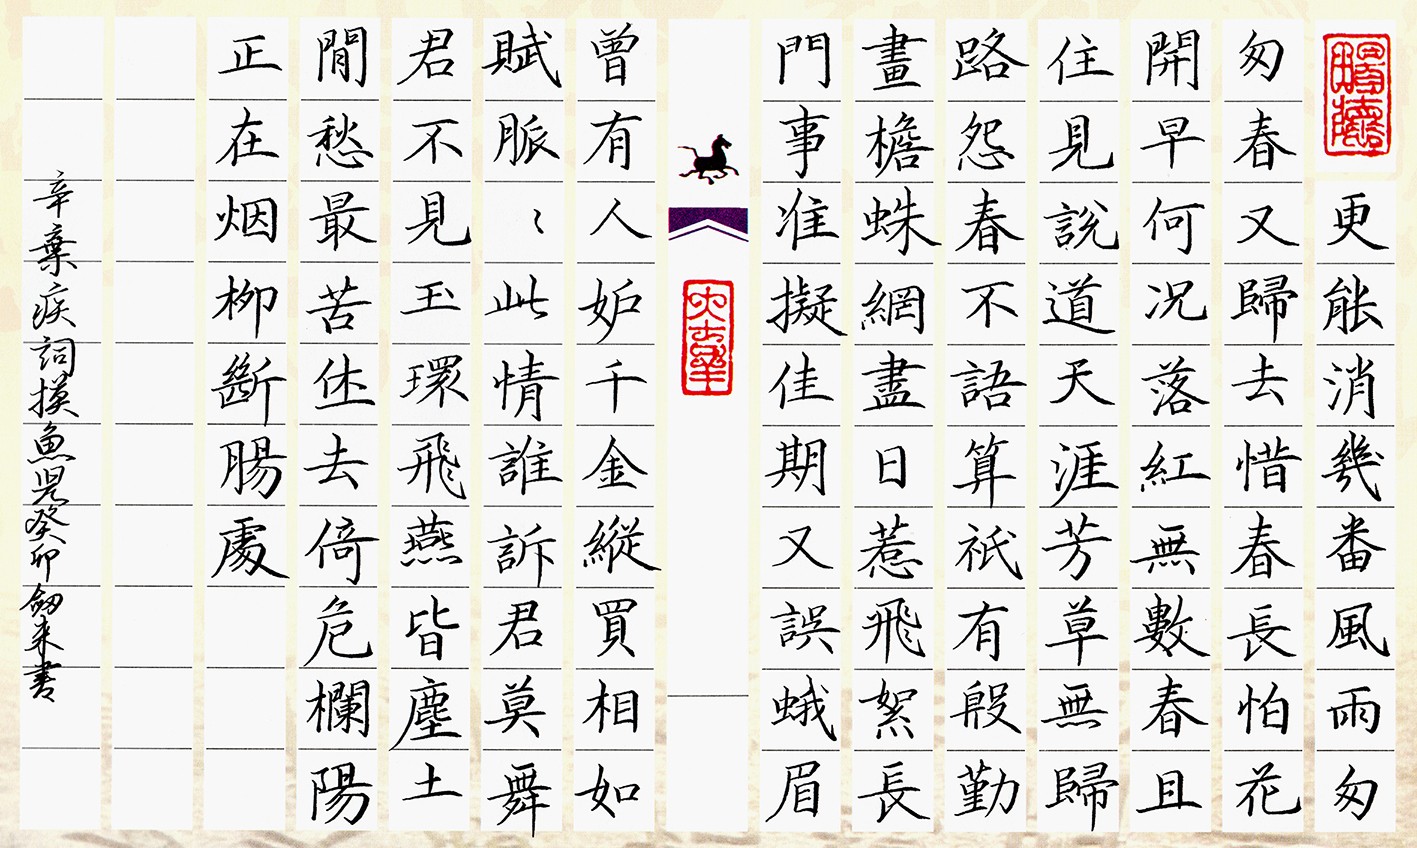 更能消幾番風雨匆
匆春又歸去惜春長怕花
開早何况落紅無數春且
住見說道天涯芳草無歸
路怨春不語算祇有殷勤
畫檐蛛網盡日惹飛絮長
門事准擬佳期又誤蛾眉
曾有人妒千金縱買相如
賦脈〻此情誰訴君莫舞
君不見玉環飛燕皆塵土
閒愁最苦休去倚危欄陽
正在烟柳斷腸處
辛棄疾詞摸魚兒癸卯劒来書